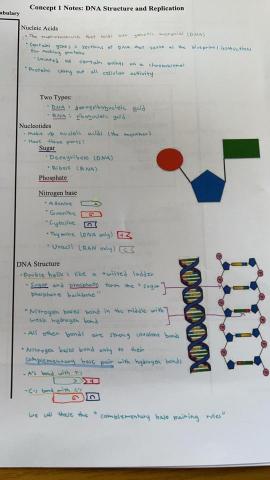 Concept 1 Notes: DNA Structure and Replication
abulary
Nucleic Acids
• The macromolecule that holds our genetic material (DNA)
• Contain genes = sections of DNA that serve as the blueprint/instructions
for making proteins
• Located at certain points on a chromosome
• Proteins carry out all cellular activity
Two Types:
DNA: deoxyribonucleic acid
RNA: ribonucleic acid
Nucleotides
• Make up nucleic acids (the monomer)
• Have three parts:
Sugar
• Deoxyribose (DNA)
• Ribose (RNA)
Phosphate
Nitrogen base
• Adenine
• Guanine
• Cytosine
• Thymine (DNA only)
• Uracil (RAN only)
DNA Structure
• Double helix: like a twisted ladder
• Sugar and phosphate form the "sugar
phosphate backbone"
• Nitrogen bases bond in the middle with
weak hydrogen bond
• All other bonds are strong covalent bonds
• Nitrogen bases bond only to their
complementary base pair with hydrogen bonds
- A's bond with T's
- C's bond with G's
We call these the "complementary base pairing rules"